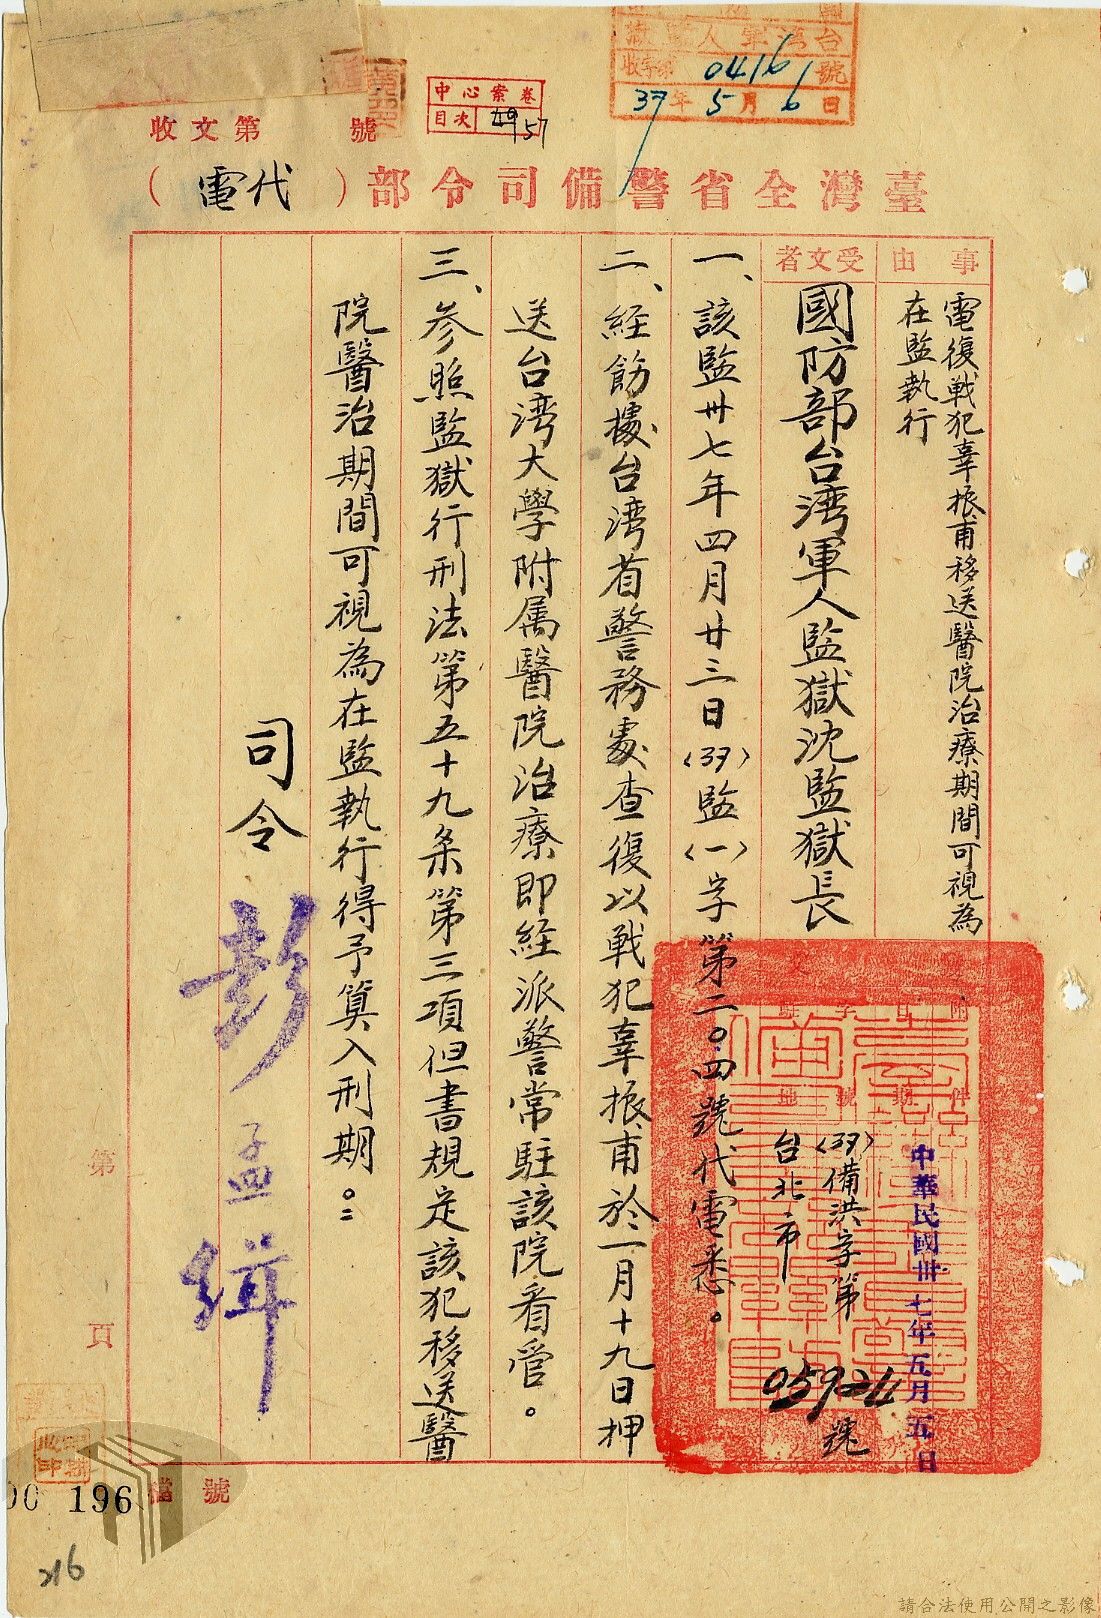 台灣軍人監獄
收字第04161號
37年5月6日
中心案卷
目次 57
收文第 號
臺灣全省警備司令部（代電）
事由
電復戰犯辜振甫移送醫院治療期間可視為
在監執行
受文者
國防部台湾軍人監獄沈監獄長
附件
日期
字號
駐地
中華民國卅七年五月五日
(37)備洪字第05924號
台北市
一、該監卅七年四月廿三日(37)監(一)字第二〇四號代電悉。
二、経飭據台湾省警務處查復以戰犯辜振甫於一月十九日押
送台湾大學附属醫院治療即経派警常駐該院看管。
三、参照監獄行刑法第五十九条第三項但書規定該犯移送醫
院醫治期間可視為在監執行得予算入刑期。
司令 彭孟緝
第 頁
檔號
196
216
請合法使用公開之影像